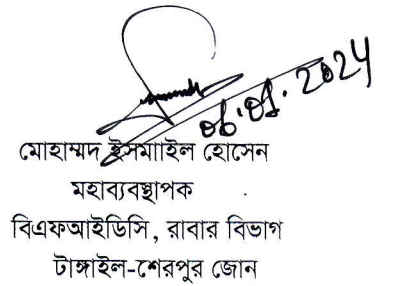 06.01.2024
মোহাম্মদ ইসমাাইল হোসেন
মহাব্যবস্থাপক
বিএফআইডিসি, রাবার বিভাগ
টাঙ্গাইল-শেরপুর জোন